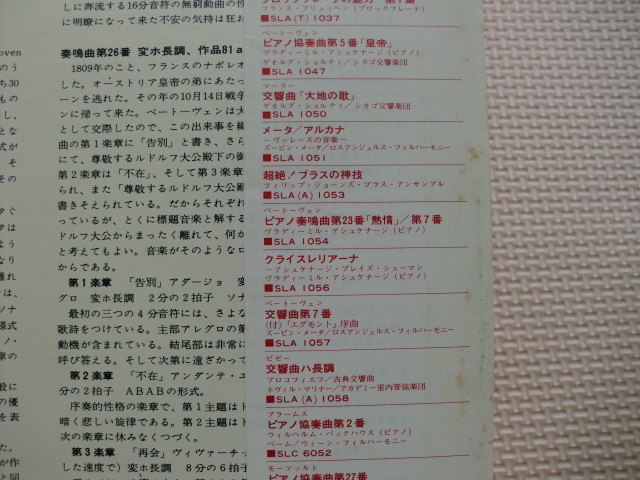 しに奔流する16分音符の無窮動曲の
に明瞭になって来た不安の気持は狂お
奏鳴曲第26番 変ホ長調、作品81a
1809年のこと、フランスのナポレオ
した。オーストリア皇帝の弟にあたっ
ーンを逃れた。その年の10月14日戦争
ンに帰って来た。ベートーヴェンは大
として交際したので、この出来事を
曲の第1楽章に「告別」と書き、さら
にて、尊敬するルドルフ大公殿下の御
第2楽章は「不在」、そして第3楽章
られ、また「尊敬するルドルフ大公殿
書きそえられている。だからそれぞれ
っているが、とくに標題音楽と解する
ドルフ大公からまったく離れて、何か
と考えてもよい。音楽がそのようなロ
からである。
第1楽章 「告別」アダージョ 変
グロ 変ホ長調 2分の2拍子 ソナ
最初の三つの4分音符には、さよな
歌詩をつけている。主部アレグロの第
動機が含まれている。結尾部は非常に
呼び答える。そして次第に遠ざかって
第2楽章 「不在」アンダンテ・エ
分の2拍子 ABABの形式。
序奏的性格の楽章で、第1主題はト
暗く悲しい旋律である。第2主題はト
次の楽章に休みなくつづく。
第3楽章 「再会」ヴィヴァーチッ
した速度で）変ホ長調 8分の6拍子
フランス・ブリュッヘン（ブロックフレーテ）
■SLA(T) 1037
ベートーヴェン
ピアノ協奏曲第5番「皇帝」
ヴラディーミル・アシュケナージ（ピアノ）
ゲオルグ・ショルティ／シカゴ交響楽団
■SLA 1047
マーラー
交響曲「大地の歌」
ゲオルグ・ショルティ／シカゴ交響楽団
■SLA 1050
メータ／アルカナ
―ヴァレーズの音楽―
ズービン・メータ／ロスアンジェルス・フィルハーモニー
■SLA 1051
超絶！ブラスの神技
フィリップ・ジョーンズ・ブラス・アンサンブル
■SLA(A) 1053
ベートーヴェン
ピアノ奏鳴曲第23番「熱情」／第7番
ヴラディーミル・アシュケナージ（ピアノ）
■SLA 1054
クライスレリアーナ
―アシュケナージ・プレイズ・シューマン
ヴラディーミル・アシュケナージ（ピアノ）
■SLA 1056
ベートーヴェン
交響曲第7番
(付)「エグモント」序曲
ズービン・メータ／ロスアンジェルス・フィルハーモニー
■SLA 1057
ビゼー
交響曲ハ長調
プロコフィエフ／古典交響曲
ネヴィル・マリナー／アカデミー室内管弦楽団
■SLA(A) 1058
ブラームス
ピアノ協奏曲第2番
ウィルヘルム・バックハウス（ピアノ）
ベーム／ウィーン・フィルハーモニー
■SLC 6052
モーツァルト
ピアノ協奏曲第27番